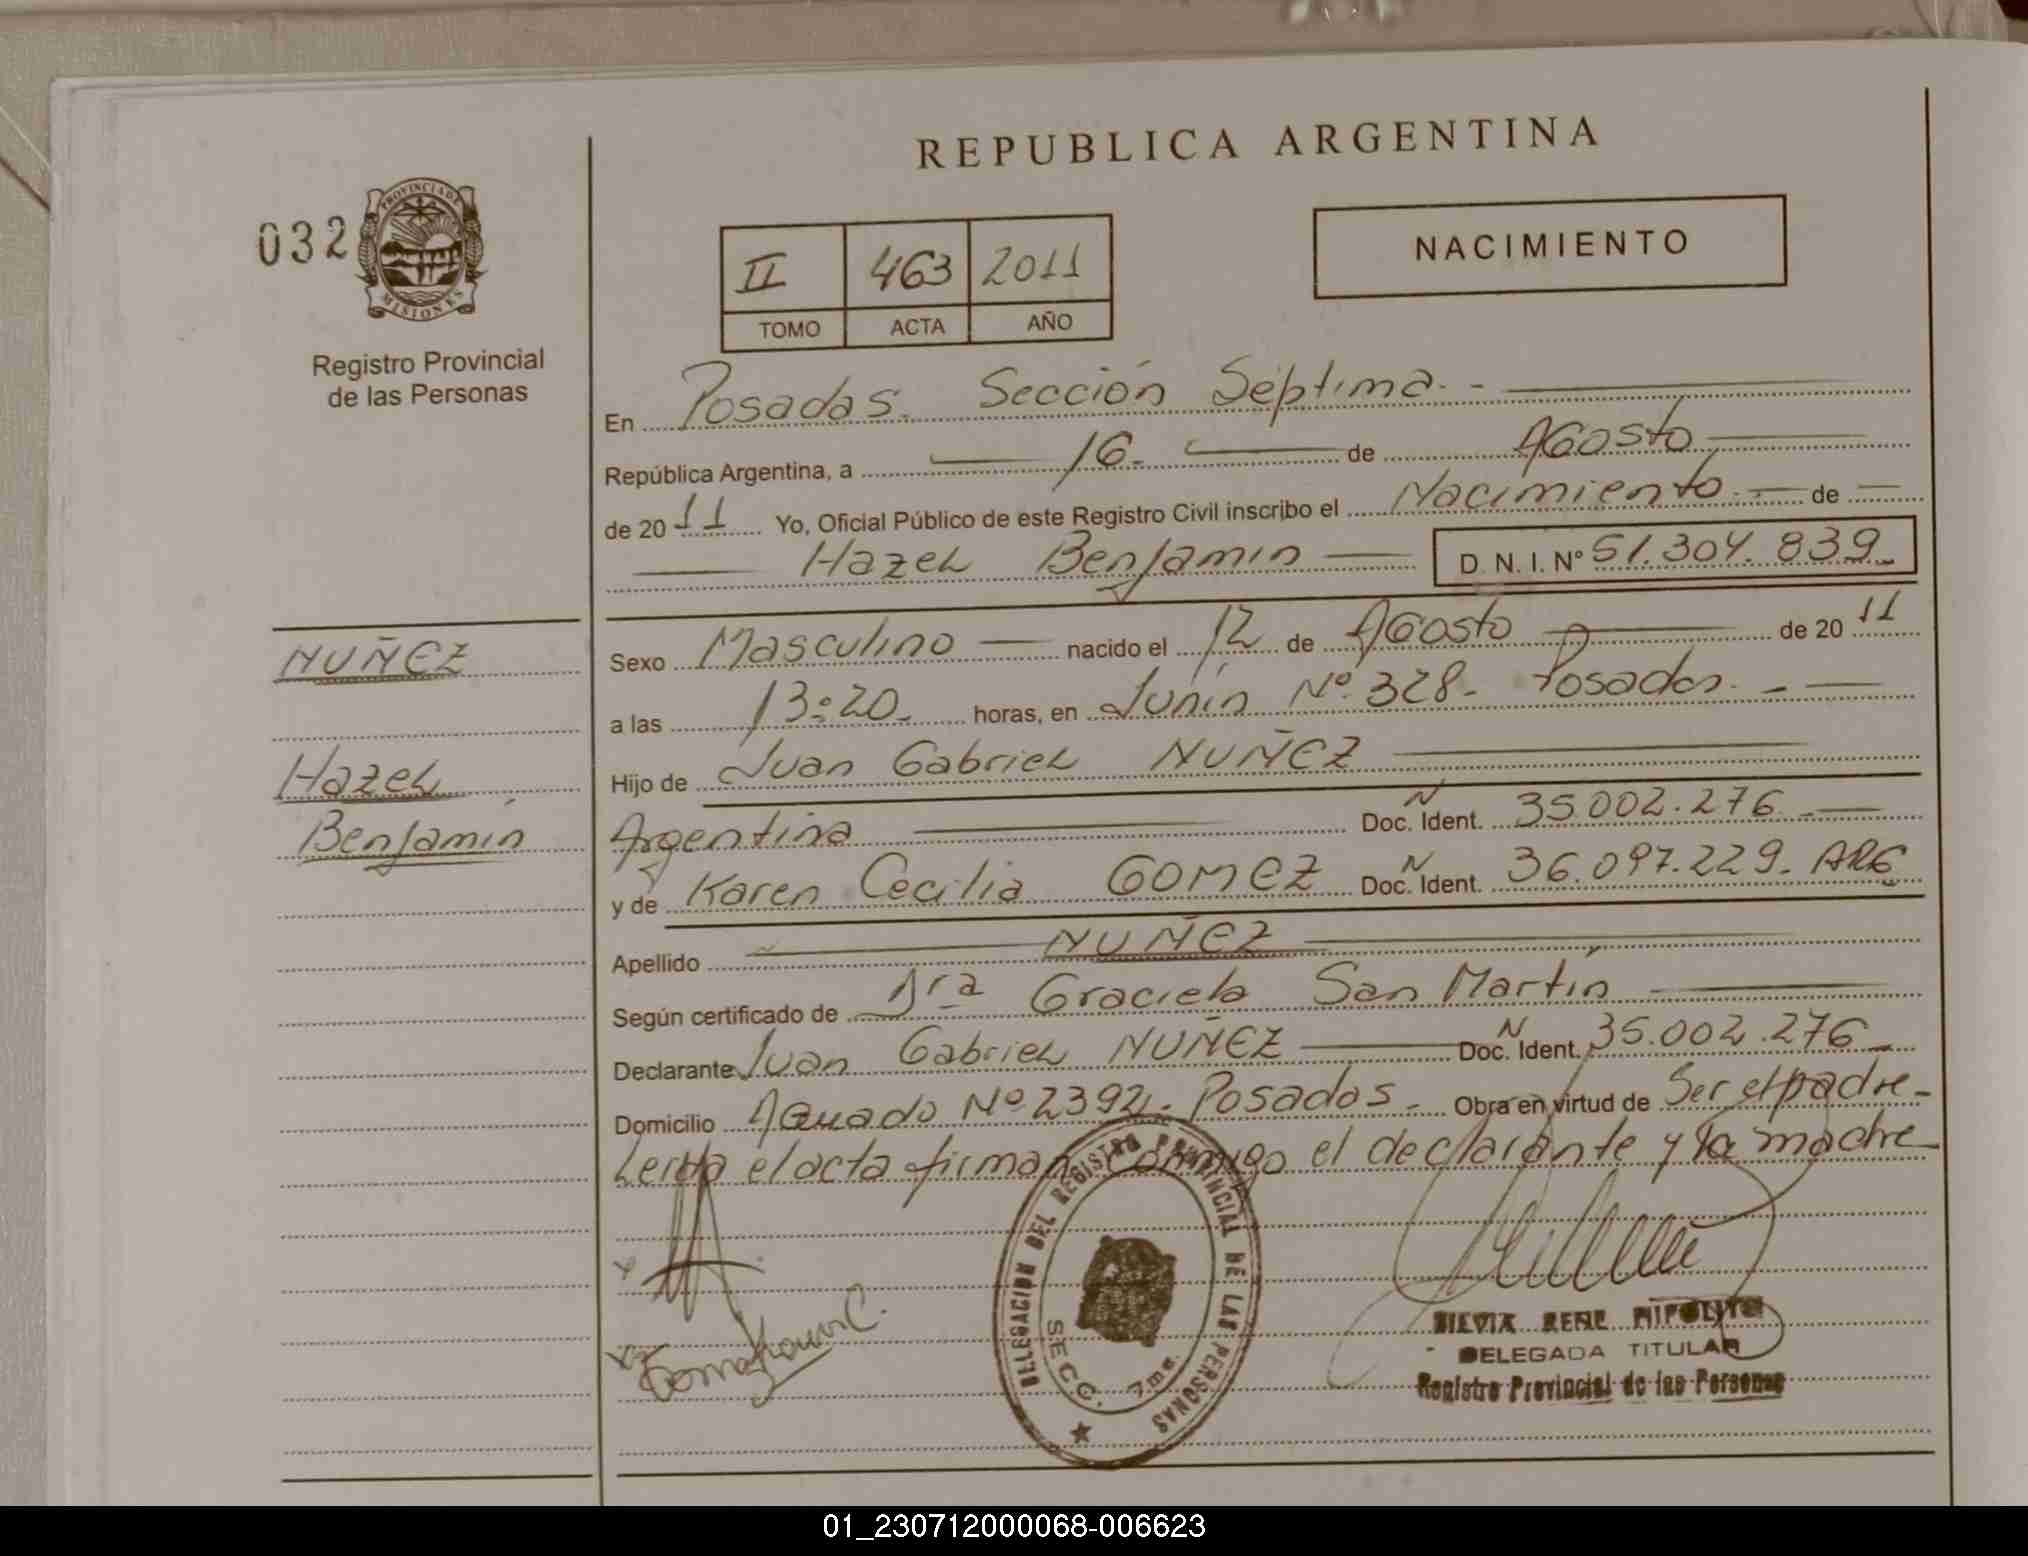 REPUBLICA ARGENTINA
032
PROVINCIA DE
MISIONES
Registro Provincial
de las Personas
II 463 2011
TOMO ACTA AÑO
NACIMIENTO
En Posadas. Sección Séptima. - 
República Argentina, a 16. de Agosto
de 2011 Yo, Oficial Público de este Registro Civil inscribo el Nacimiento. de
Hazel Benjamín D. N. I. Nº 51.304.839
NUÑEZ
Hazel
Benjamín
Sexo Masculino nacido el 12 de Agosto de 2011
a las 13:20. horas, en Junín Nº 328. Posadas. -
Hijo de Juan Gabriel NUÑEZ
Argentina Doc. Ident. 35.002.276.
y de Karen Cecilia GOMEZ Doc. Ident. 36.097.229. ARG
Apellido NUÑEZ
Según certificado de Dra Graciela San Martín
Declarante Juan Gabriel NUÑEZ Doc. Ident. 35.002.276
Domicilio Aguado Nº 2392. Posadas. Obra en virtud de Ser el padre -
Leida el acta firman conmigo el declarante y la madre
DELEGACION DEL REGISTRO PROVINCIAL DE LAS PERSONAS
SECC. 7ma.
Gomez Karen C.
SILVIA RENE HIPOLITO
DELEGADA TITULAR
Registro Provincial de las Personas
01_230712000068-006623